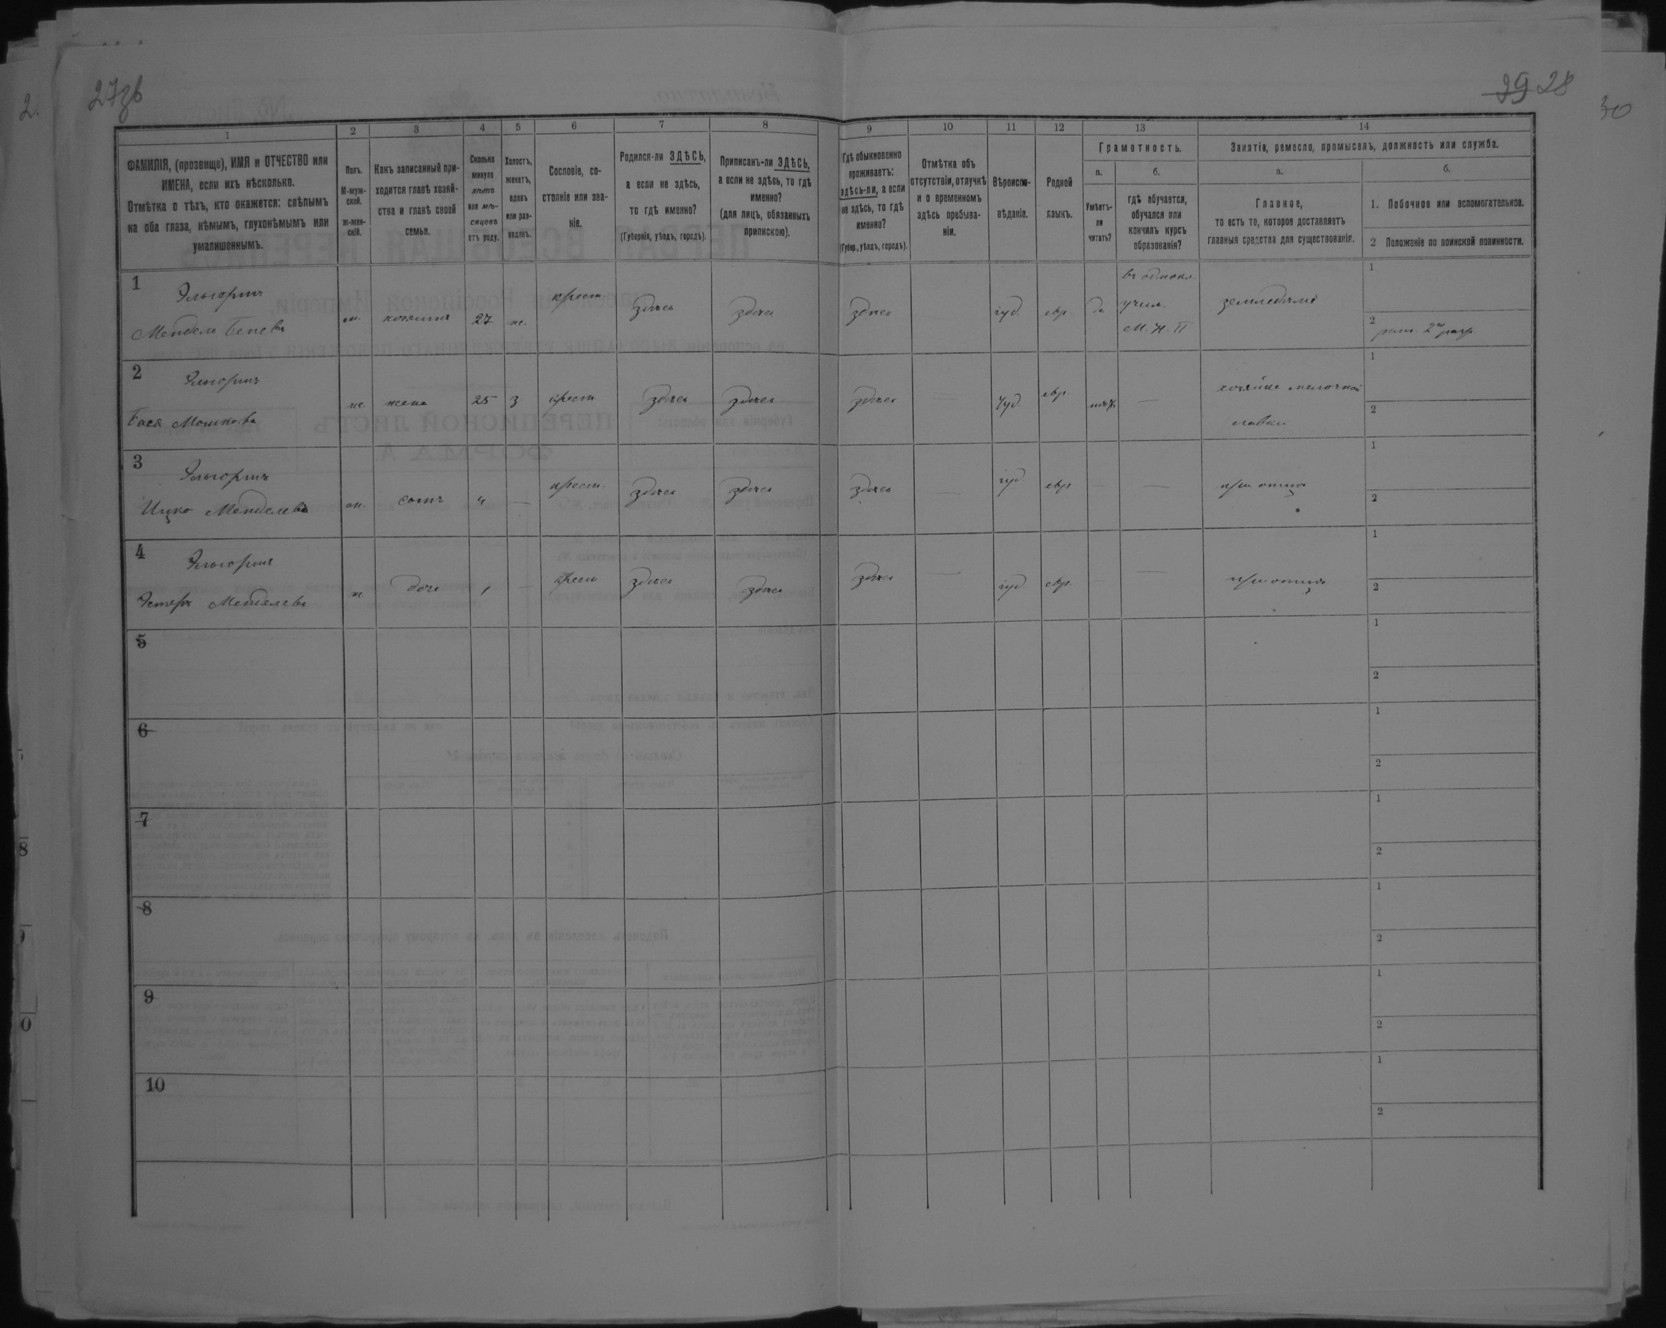 27зв
39 28
1 2 3 4 5 6 7 8 9 10 11 12 13 14
ФАМИЛІЯ, (прозвище), ИМЯ и ОТЧЕСТВО или
ИМЕНА, если ихъ нѣсколько.
Отмѣтка о тѣхъ, кто окажется: слѣпымъ
на оба глаза, нѣмымъ, глухонѣмымъ или
умалишоннымъ.
Полъ.
М-муж-
ской.
ж-жен-
скій.
Какъ записанный при-
ходится главѣ хозяй-
ства и главѣ своей
семьи.
Сколько
минуло
лѣтъ
или мѣ-
сяцевъ
отъ роду.
Холостъ,
женатъ,
вдовъ
или раз-
веденъ.
Сословіе, со-
стояніе или зва-
ніе.
Родился-ли ЗДѢСЬ,
а если не здѣсь,
то гдѣ именно?
(Губернія, уѣздъ, городъ).
Приписанъ-ли ЗДѢСЬ,
а если не здѣсь, то гдѣ
именно?
(для лицъ, обязанныхъ
припискою).
Гдѣ обыкновенно
проживаетъ:
здѣсь-ли, а если
не здѣсь, то гдѣ
именно?
(Губер., уѣздъ, городъ).
Отмѣтка объ
отсутствіи, отлучкѣ
и о временномъ
здѣсь пребыва-
ніи.
Вѣроиспо-
вѣданіе.
Родной
языкъ.
Грамотность.
а.
Умѣетъ-
ли
читать?
б.
гдѣ обучается,
обучался или
кончилъ курсъ
образованія?
Занятія, ремесло, промыселъ, должность или служба.
а.
Главное,
то есть то, которое доставляетъ
главныя средства для существованія.
б.
1. Побочное или вспомогательное.
2 Положеніе по воинской повинности.
1 Эльгортъ
Мендель
м. хозяинъ 27 ж. крест. здѣсь здѣсь здѣсь іуд. евр. да
учил.
М. Н. П
земледѣліе
1
2
2 Эльгортъ
Бася Мошкова
ж. жена 25 З крест. здѣсь здѣсь здѣсь — іуд. евр. —
хозяйка мелочной
лавки
1
2
3 Эльгортъ
Ицко Менделевъ
м. сынъ 4 — крест. здѣсь здѣсь здѣсь — іуд евр. — — при отцѣ
1
2
4 Эльгортъ
Эстеръ Менделева
ж дочь 1 — крест. здѣсь здѣсь здѣсь — іуд. евр. — — при отцѣ
1
2
5
1
2
6
1
2
7
1
2
8
1
2
9
1
2
10
1
2